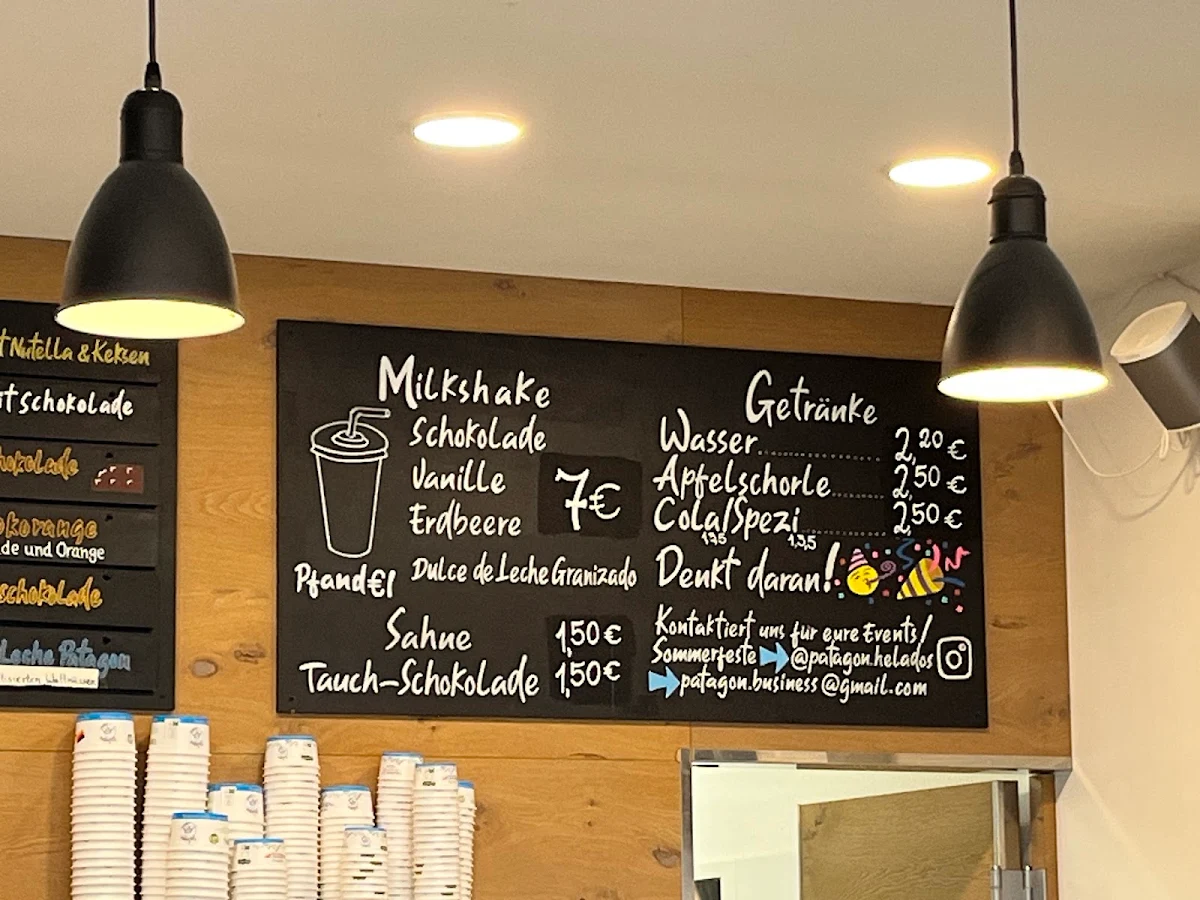 Nutella & Keksen
schokolade
okorange
de und Orange
schokolade
Leche Patagon
Milkshake
Schokolade
Vanille
Erdbeere
7€
Dulce de Leche Granizado
Pfand €1
Sahne 1,50€
Tauch-Schokolade 1,50€
Getränke
Wasser........ 2,20€
Apfelschorle....... 2,50€
Cola/Spezi........ 2,50€
1,3,5 1,3,5
Denkt daran!
Kontaktiert uns für eure Events/
Sommerfeste @patagon.helados
patagon.business@gmail.com